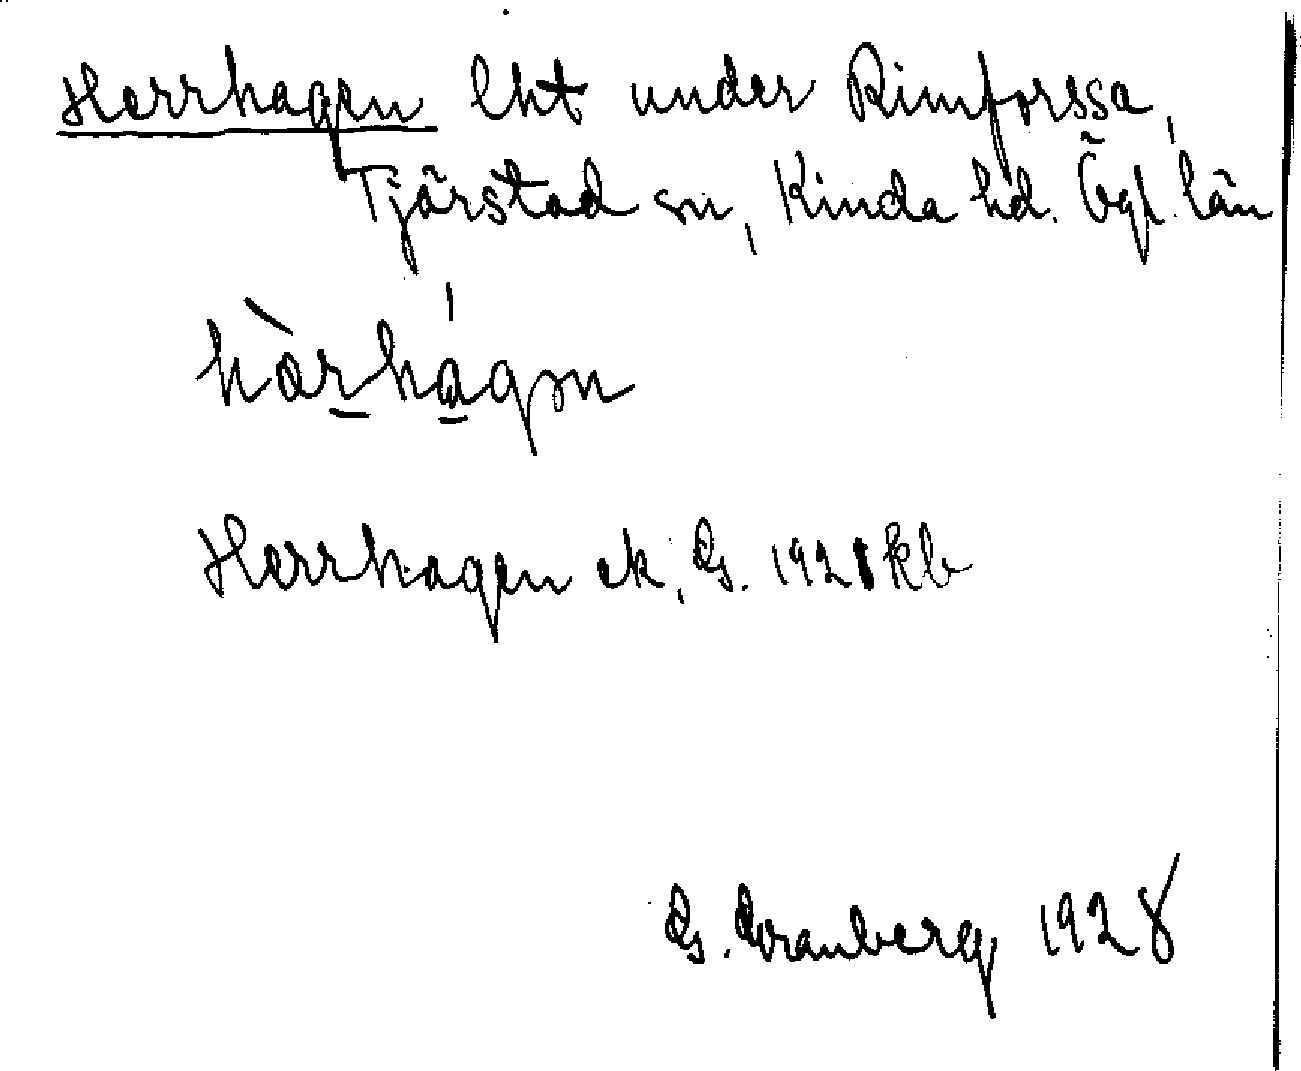 Herrhagen lht under Rimforssa,
Tjärstad sn, Kinda hd. Ögl. län
hàrhágən
Herrhagen ek, G. 1921 kb
G. Granberg 1928